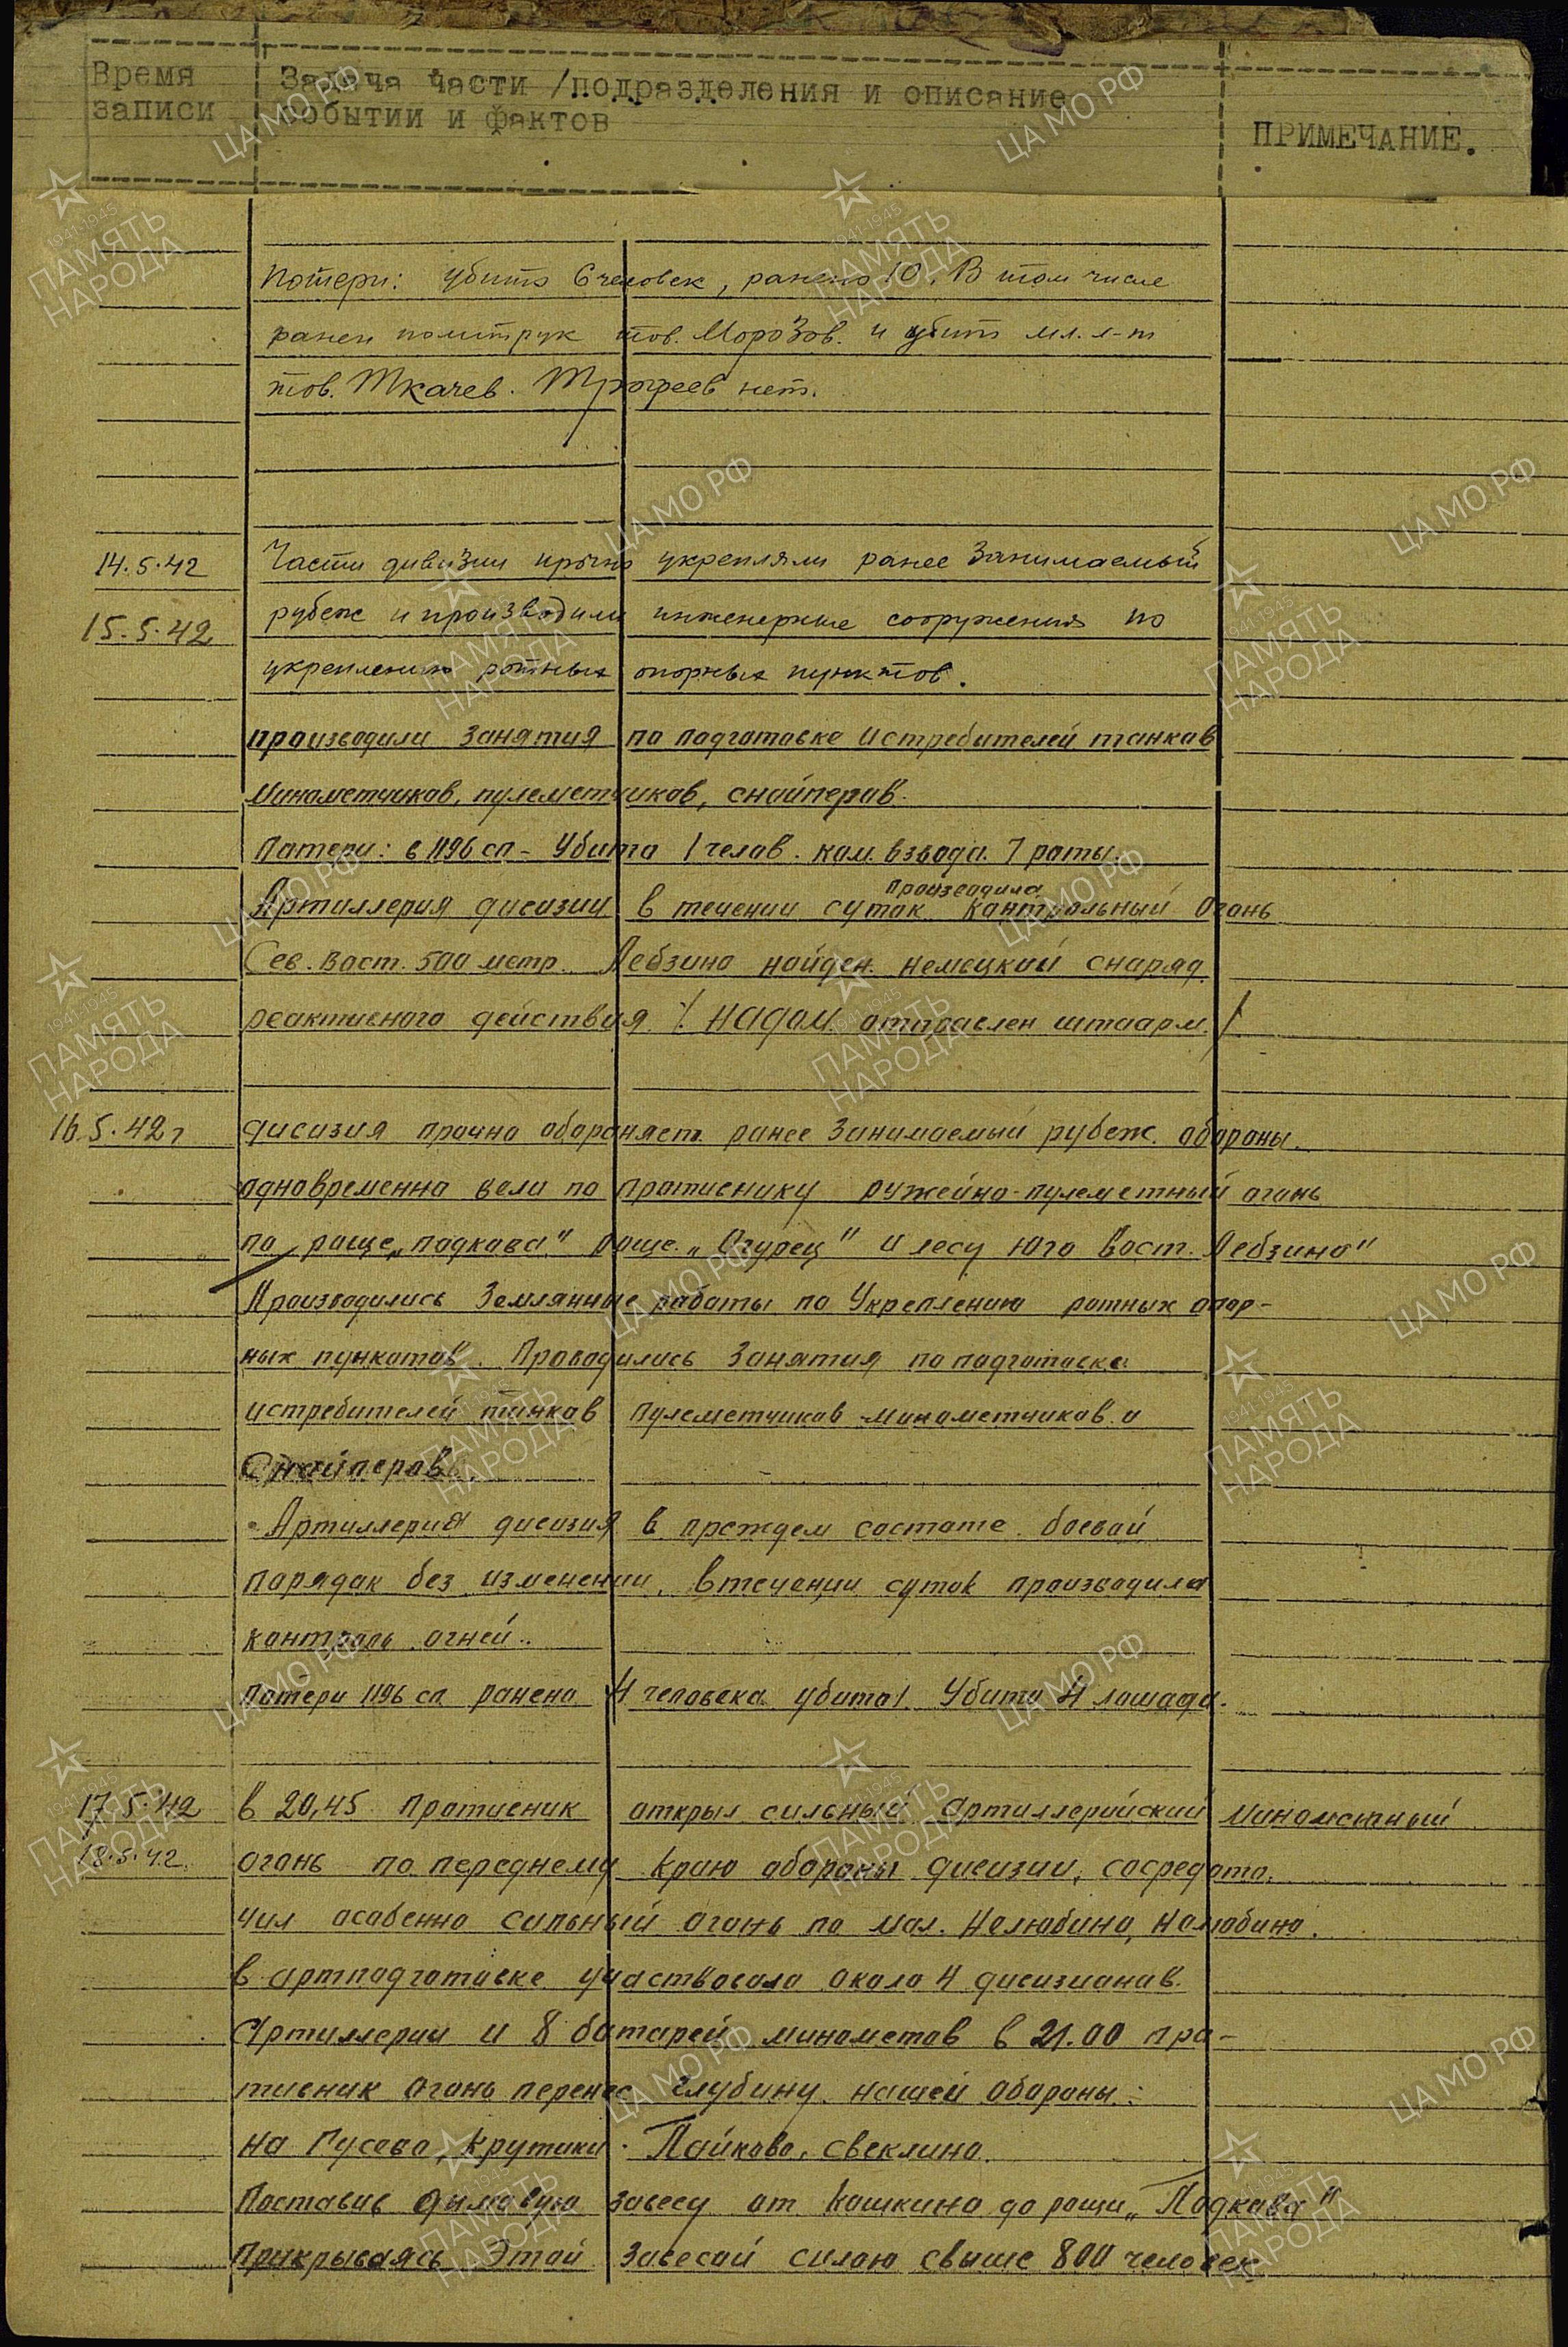 Время записи
Задача части /подразделения и описание
событии и фактов
ПРИМЕЧАНИЕ.
Потери: убито 6 человек, ранено 10. В том числе
ранен политрук тов. Морозов. и убит мл. л-т
тов. Ткачев. Трофеев нет.
14.5.42
Части дивизии прочно укрепляли ранее занимаемый
15.5.42
рубеж и производили инженерные сооружения по
укреплению ротных опорных пунктов.
производили занятия по подготовке истребителей танков
минометчиков, пулеметчиков, снайперов.
Потери: в 1196 сп - Убито 1 челов. ком. взвода. 7 роты.
производила
Артиллерия дивизии в течении суток контрольный огонь
Сев. Вост. 500 метр. Лебзино найден. немецкий снаряд
реактивного действия. / отправлен штаарм. /
16.5.42г
дивизия прочно обороняет ранее занимаемый рубеж. обороны.
одновременно вели по противнику ружейно-пулеметный огонь
по роще „подкова" роще „Огурец" и лесу юго вост. Лебзино"
Производились Землянные работы по Укреплению ротных опор-
ных пунктов. Проводились занятия по подготовке
истребителей танков пулеметчиков минометчиков и
Снайперов.
Артиллерия дивизия в преждем составе. боевой
порядок без изменении. в течении суток производила
контроль огней..
Потери 1196 сп ранено 4 человека убито 1. Убито 4 лошади.
17.5.42
в 20,45 Противник открыл сильный артиллерийский минометный
18.5.42.
огонь по переднему краю обороны дивизии, сосредото.
чил особенно сильный огонь по мал. Нелюбино, Нелюбино.
в артподготовке участвовало около 4 дивизионов.
Артиллерии и 8 батарей минометов в 21.00 про-
тивник огонь перенес глубину нашей обороны:
на Гусево, Крутики. Пайково, Свеклино.
Поставив дымовую завесу от Кошкино до рощи „Подкова"
Прикрываясь Этой завесой силою свыше 800 человек
ЦА МО РФ
1941-1945
ПАМЯТЬ
НАРОДА